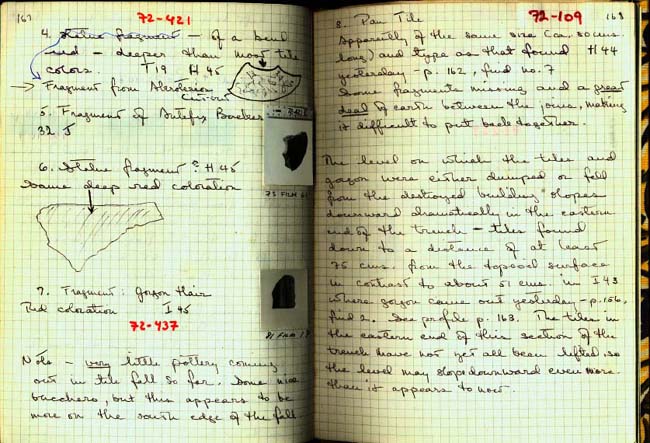 167
72-421
4. Statue fragment - of a
- deeper than most tile
colors. T19 H 45
→ Fragment from Akroterion
Cut-out
5. Fragment of Antefix Backer
32 J
6. Statue fragment? H 45
Same deep red coloration
7. Fragment: Gorgon Hair
Red coloration I 45
72-437
Note - very little pottery coming
out in tile fall so far. Some nice
bucchero, but this appears to be
more on the south edge of the fall
75 FILM 6
81 FILM 1
72-109
168
8. Pan Tile
Apparently of the same size (ca. 50 cms.
long) and type as that found H 44
yesterday - p. 162, find no. 7
Some fragments missing and a great
deal of earth between the joins, making
it difficult to put back together.
The level on which the tiles and
gorgon were either dumped or fell
from the destroyed building slopes
downward dramatically in the eastern
end of the trench - tiles found
down to a distance of at least
75 cms. from the topsoil surface
in contrast to about 51 cms. in I 43
where gorgon came out yesterday - p. 156,
find 2. See profile p. 163. The tiles in
the eastern end of this section of the
trench have not yet all been lifted, so
the level may slope downward even more
than it appears to now.